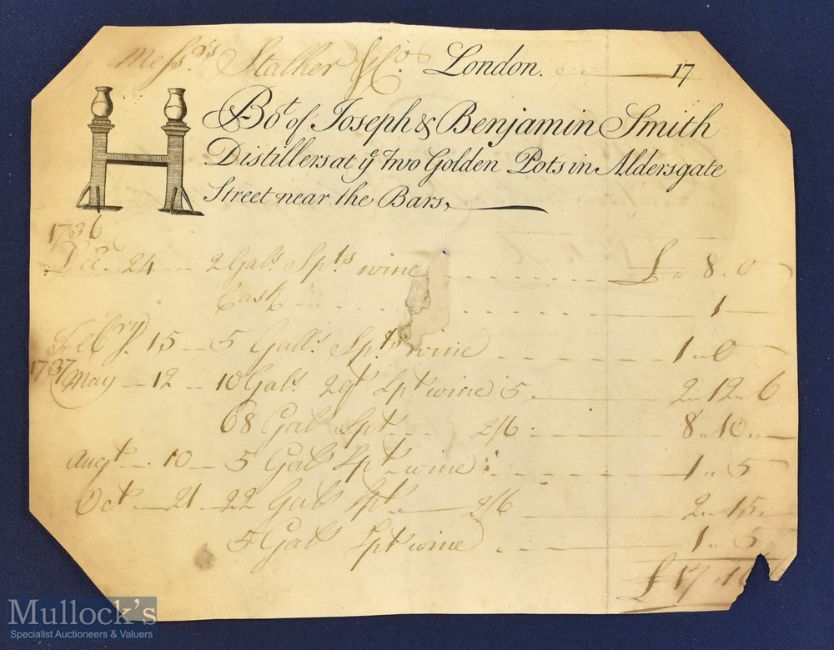 Messrs Stalker & Co London. 17
Bot of Joseph & Benjamin Smith
Distillers at ye Two Golden Pots in Aldersgate
Street near the Bars,
1736
Decr 24 2 Gals Spts wine £ " 8 " 0
Cask 1 —
Febry 15 5 Galls Spts wine 1 " 0
1737
May 12 10 Gals 2qt Spt wine 5 2 " 12 " 6
68 Gals Spt 2/6 8 " 10 " —
Augt 10 5 Gals Spt wine 1 " 5
Oct 21 22 Gals Spt 2/6 2 " 15 "
5 Gals Spt wine 1 " 5
£ 17
Mullock's
Specialist Auctioneers & Valuers